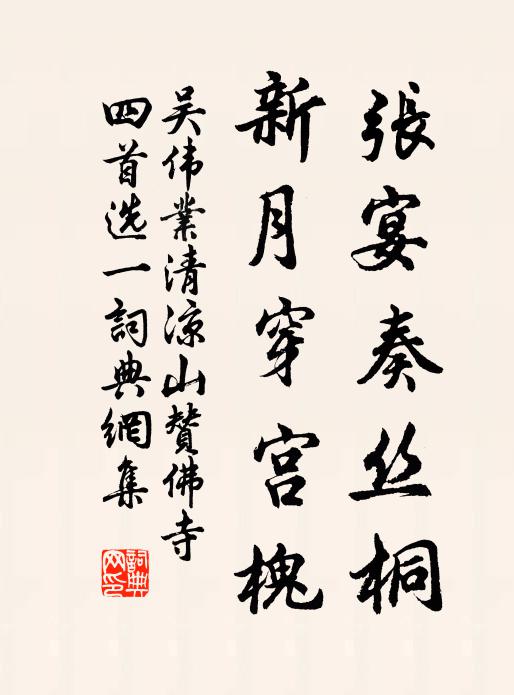 張宴奏丝桐
新月穿宫槐
吴伟業清凉山贊佛寺
四首选一詞典網集
詞典网印